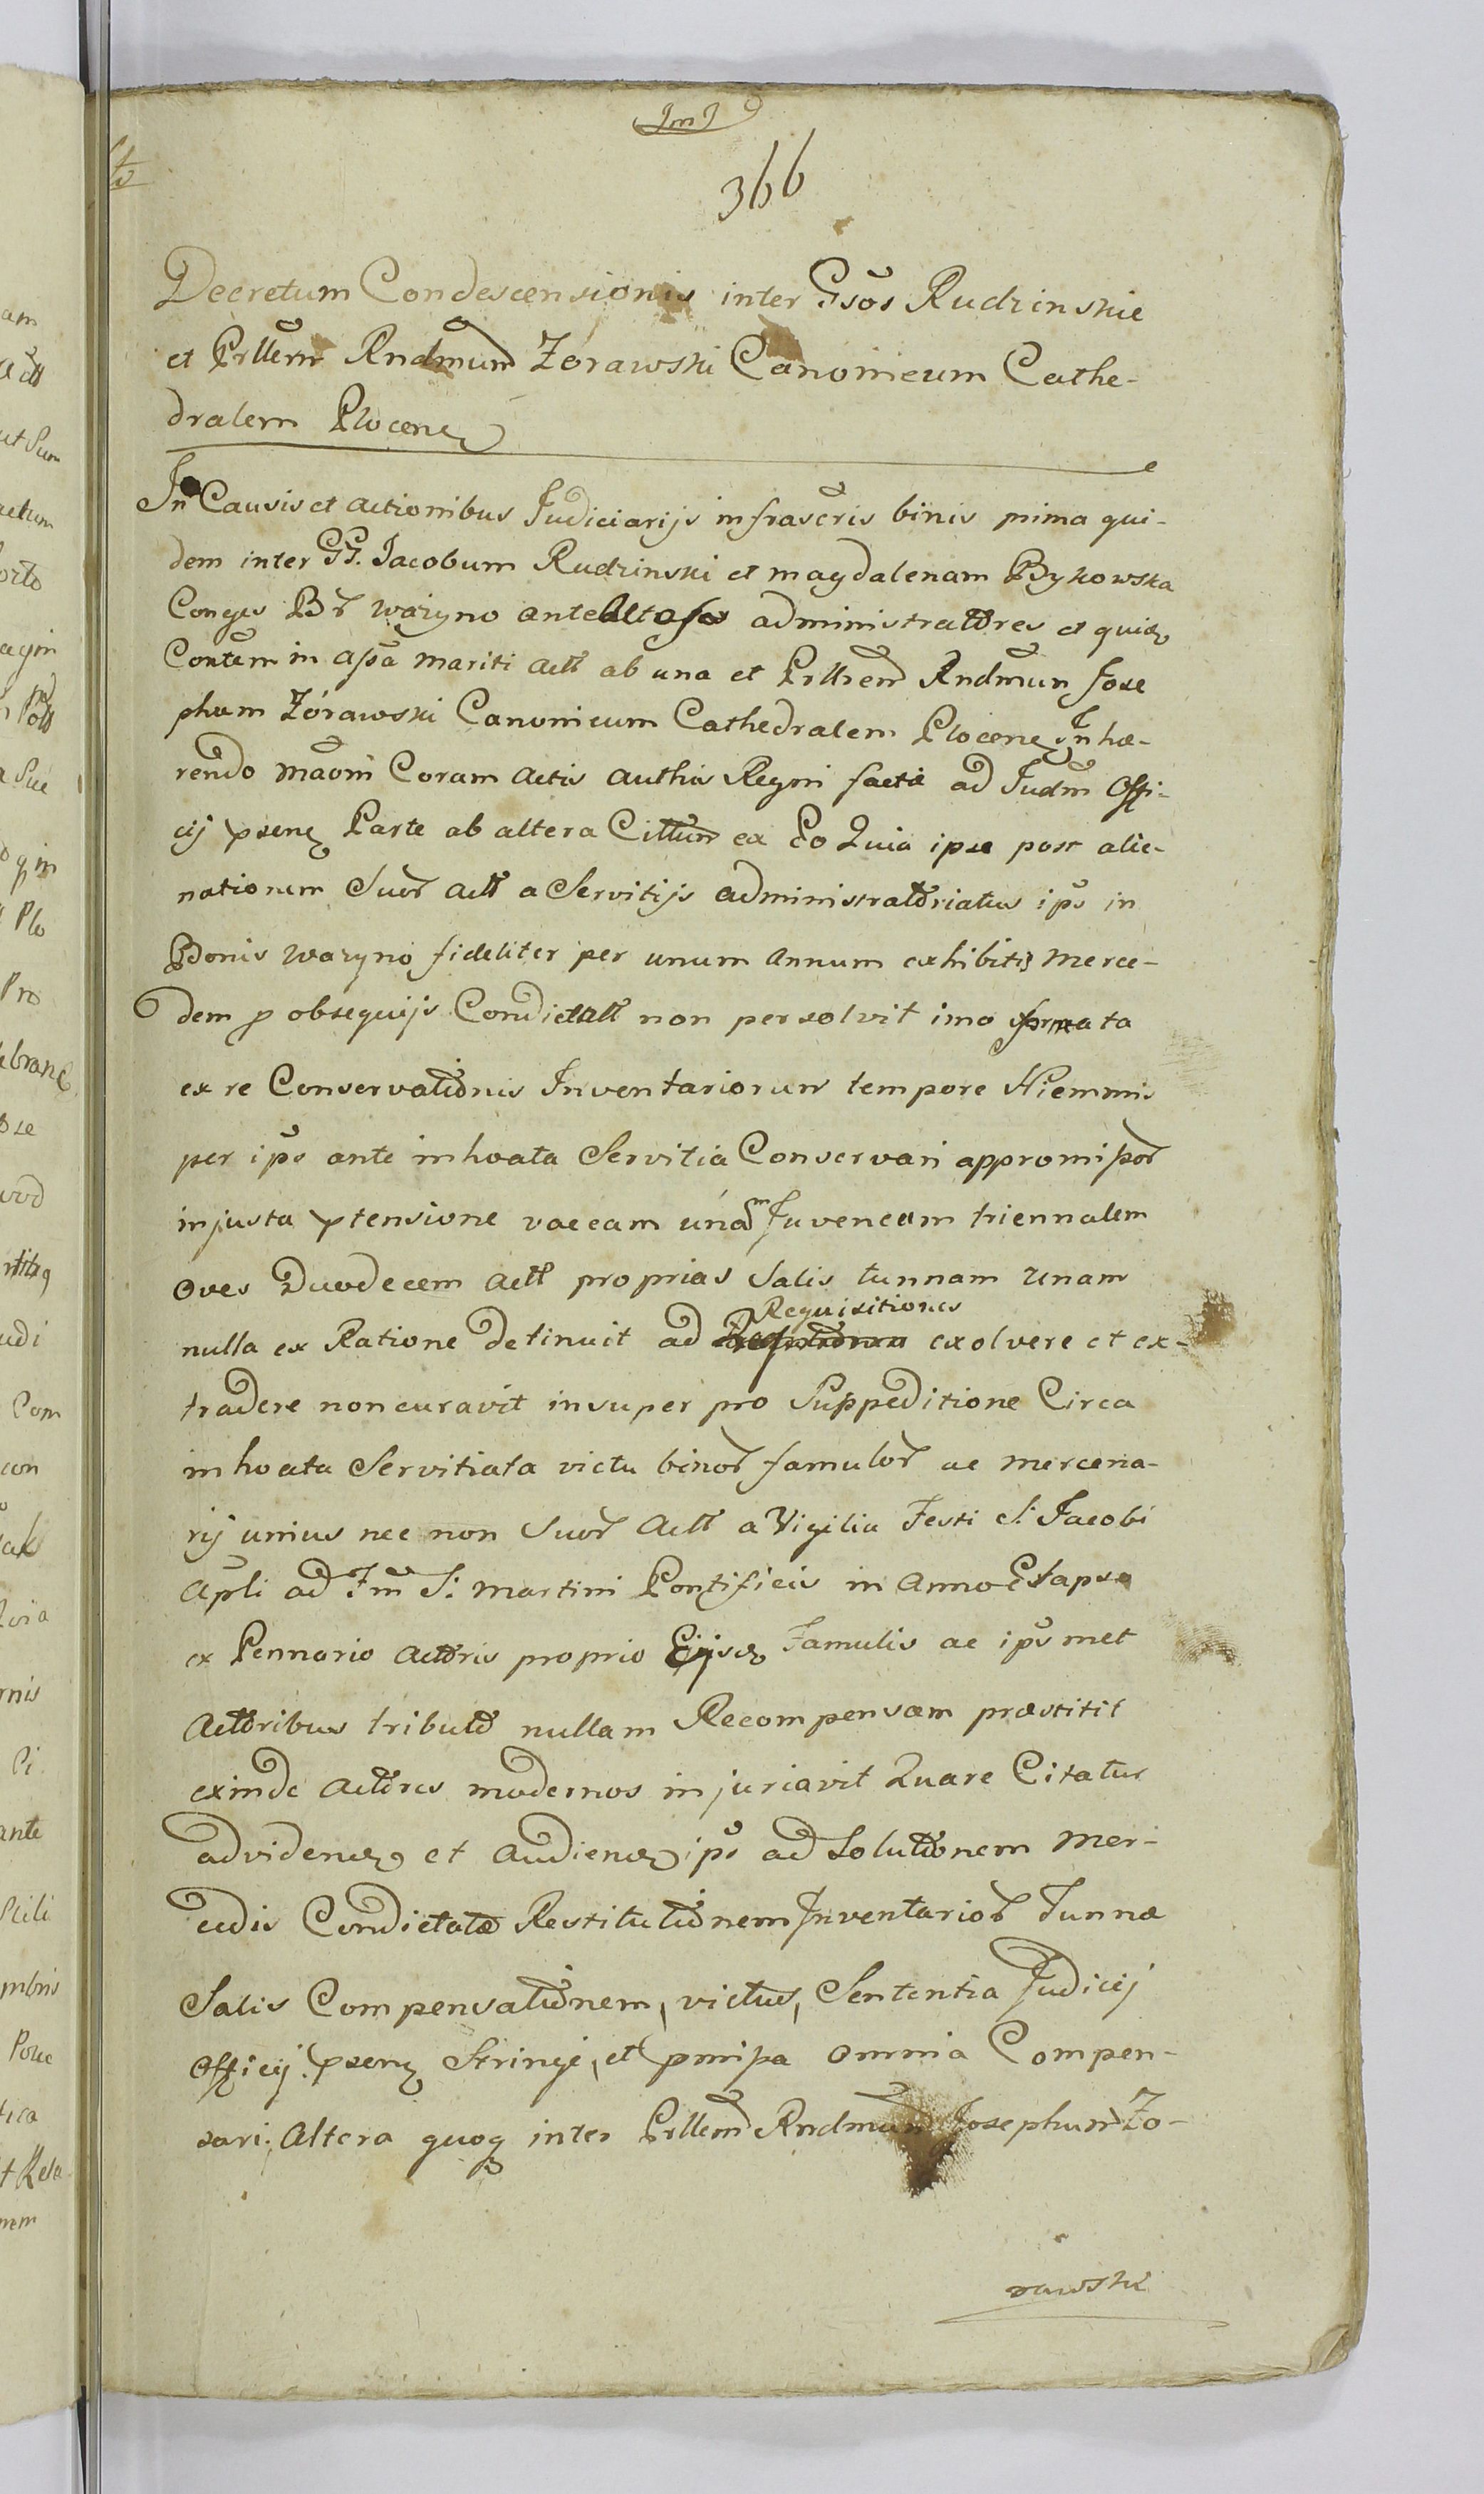 366
Decretum Condescensionis inter Gsos Rudzinskie
et Prllem Rndmum Zórawski Canonicum Cathe-
dralem Plocenẽ
In Causis et Actionibus Judiciarijs infrascris binis prima qui-
dem inter GG. Jacobum Rudzinski et Magdalenam Bykowska
Conges Br Wazyno administratores et quidẽ
Contem in assa mariti actt ab una et Prllem Rndmum Jose
phum Zórawski Canonicum Cathedralem Plocenẽ Inhæ-
rendo maom Coram Actis Authis Regni factæ ad Judm Offi-
cij psenẽ Parte ab altera Cittum ex Eo Quia ipse post alie-
nationem Suor actt a Servitijs administratoriatus ips in
Bonis Wazyno fideliter per unum Annum exhibitis merce-
dem p obsequijs Condictatt non persolvit imo
ex re Conservationis Inventariorum tempore Hiemmis
per ips ante inhoata Servitia Conservari appromissor
injusta ptensione vaccam unam Juvencam triennalem
Oves Duodecem actt proprias Salis tunnam Unam
nulla ex Ratione detinuit ad Requisitiones exolvere et ex-
tradere non curavit insuper pro Suppeditione Circa
inhoata Servitiata victu binor famulor ac mercena-
rij unius nec non Suor Actt a Vigilia Festi S: Jacobi
Apli ad Fm S: Martini Pontificis in Anno Elapso
ex Pennario Actoris proprio Ejjsdẽ Famulis ac ipsmet
Actoribus tributo nullam Recompensam præstitit
exinde Actores modernos injuriavit Quare Citatur
ad videndẽ et audiendẽ ips ad Solutionem Mer-
cedis Condictatæ Restitutionem Inventarior Tunnæ
Salis Compensationem, victus, Sententia Judicij
Officij psenẽ Stringi, et pmissa omnia Compen-
sari; Altera quoq inter Prllem Rndmum Josephum Zo-
rawski